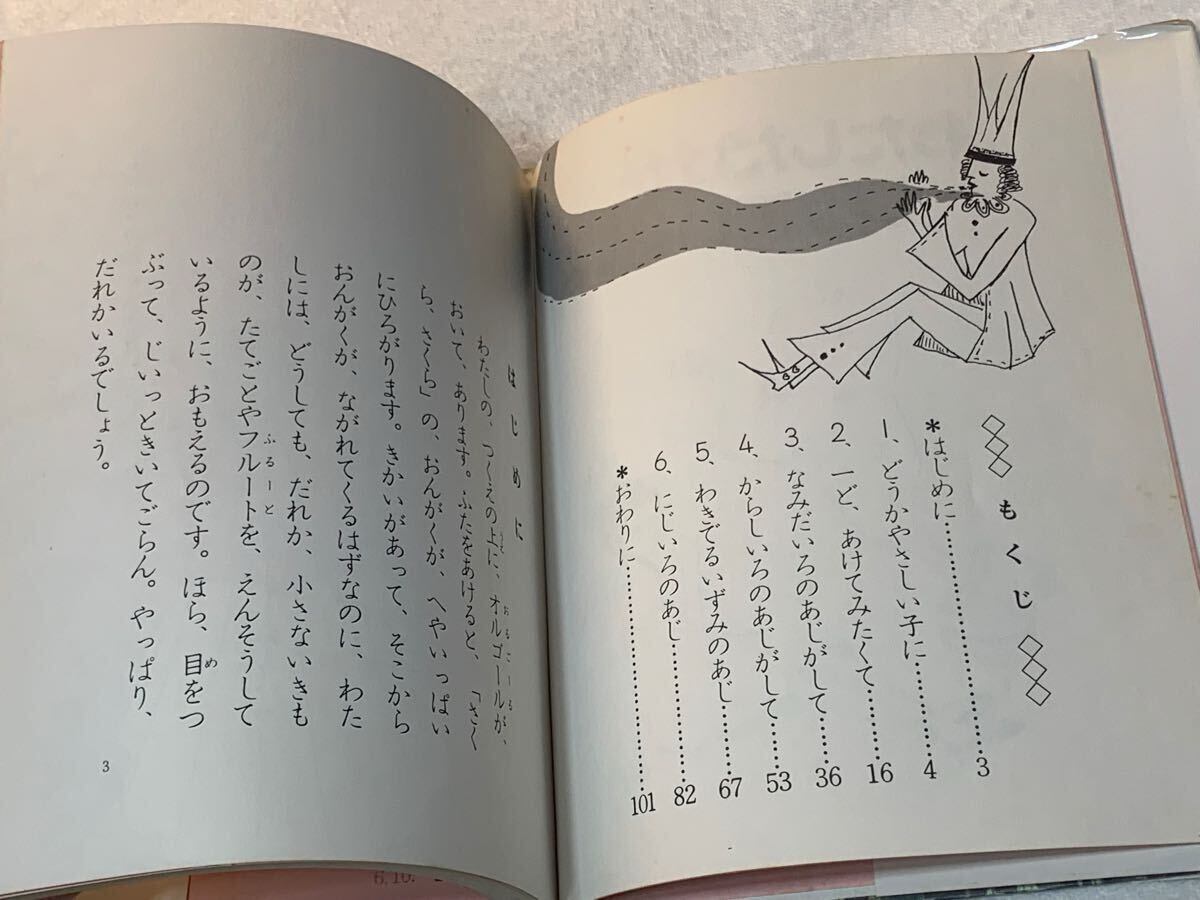 もくじ
*はじめに……3
1、どうかやさしい子に……4
2、一ど、あけてみたくて……16
3、なみだいろのあじがして……36
4、からしいろのあじがして……53
5、わきでるいずみのあじ……67
6、にじいろのあじ……82
*おわりに……101
はじめに
わたしの、つくえの上に、オルゴールが、
おいて、あります。ふたをあけると、「さく
ら、さくら」の、おんがくが、へやいっぱい
にひろがります。きかいがあって、そこから
おんがくが、ながれてくるはずなのに、わた
しには、どうしても、だれか、小さないきも
のが、たてごとやフルートを、えんそうして
いるように、おもえるのです。ほら、目をつ
ぶって、じいっときいてごらん。やっぱり、
だれかいるでしょう。
3